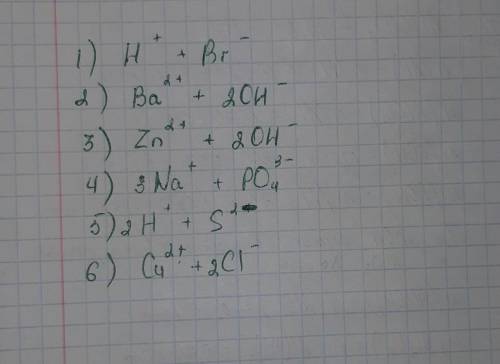 1) H⁺ + Br⁻
2) Ba²⁺ + 2OH⁻
3) Zn²⁺ + 2OH⁻
4) 3Na⁺ + PO₄³⁻
5) 2H⁺ + S²⁻
6) Cu²⁺ + 2Cl⁻